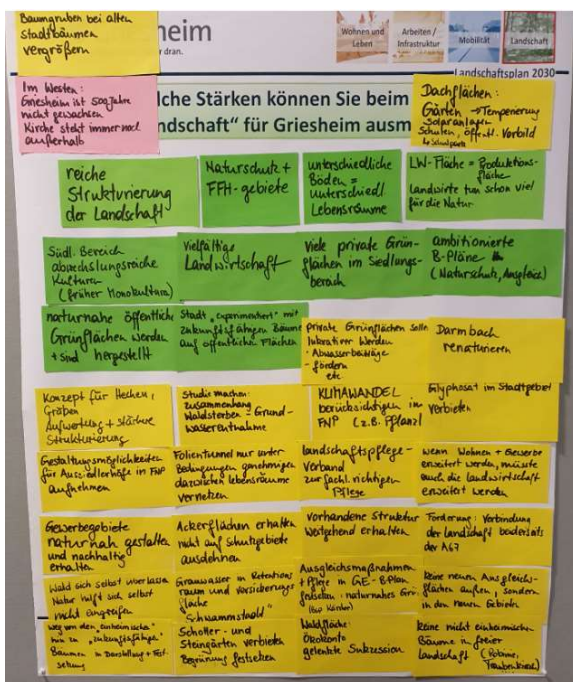 Baumgruben bei alten
Stadtbäumen
vergrößern
heim
r dran.
Wohnen und
Leben
Arbeiten /
Infrastruktur
Mobilität
Landschaft
Landschaftsplan 2030
Im Westen:
Griesheim ist 500 Jahre
nicht gewachsen
Kirche steht immer noch
außerhalb
lche Stärken können Sie beim
ndschaft“ für Griesheim ausm
Dachflächen:
Gärten → Temperierung
Solaranlagen
Schulen, öffentl. Vorbild
reiche
Strukturierung
der Landschaft
Naturschutz +
FFH-gebiete
unterschiedliche
Böden =
unterschiedl
Lebensräume
LW-Fläche = Produktions-
fläche
Landwirte tun schon viel
für die Natur
Südl. Bereich
abwechslungsreiche
Kulturen
(früher Monokultura)
vielfältige
Landwirtschaft
viele private Grün-
flächen im Siedlungs-
bereich
ambitionierte
B-Pläne
(Naturschutz, Ausgleich)
naturnahe öffentliche
Grünflächen werden
+ sind hergestellt
Stadt „experimentiert“ mit
zukunftsfähigen Bäume
auf öffentlichen Flächen
private Grünflächen solln
lukrativer werden
- Abwasserbeiträge
- fördern
etc
Darmbach
renaturieren
Konzept für Hecken,
Gräben
Aufwertung + stärkere
Strukturierung
Studie machen:
Zusammenhang
Waldsterben - Grund-
wasserentnahme
KLIMAWANDEL
berücksichtigen im
FNP (z.B. Pflanzl
Glyphosat im Stadtgebiet
verbieten
Gestaltungsmöglichkeiten
für Aussiedlerhöfe in FNP
aufnehmen
Folientunnel nur unter
Bedingungen genehmigen
dazwischen Lebensräume
vernetzen
Landschaftspflege-
Verband
zur fachl. richtigen
Pflege
wenn Wohnen + Gewerbe
erweitert werden, müsste
auch die Landwirtschaft
erweitert werden
Gewerbegebiete
naturnah gestalten
und nachhaltig
erhalten
Ackerflächen erhalten
nicht auf Schutzgebiete
ausdehnen
vorhandene Struktur
weitgehend erhalten
Forderung: Verbindung
der Landschaft beiderseits
der A67
Wald sich selbst überlassen
Natur hilft sich selbst
nicht eingreifen
Grauwasser in Retentions
raum und Versickerungs
fläche
"Schwammstadt"
Ausgleichsmaßnahmen
+ Pflege in GE-B-Plan
festsetzen: naturnahes Grü
keine neuen Ausgleichs-
flächen außen, sondern
in den neuen Gebieten
weg von den „einheimische“
hin zu „zukunftsfähigen“
Bäumen in Darstellung + Fest-
setzung
Schotter- und
Steingärten verbieten
Begrünung festsetzen
Waldfläche:
Ökokonto
gelenkte Sukzession
keine nicht einheimischen
Bäume in freier
Landschaft (Robinie,
Traubenkirsch)